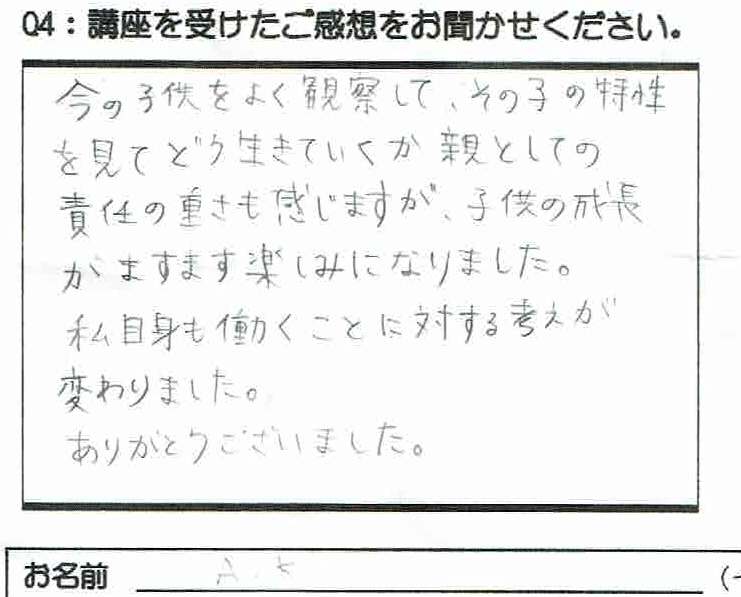 Q4：講座を受けたご感想をお聞かせください。
今の子供をよく観察して、その子の特性
を見てどう生きていくか 親としての
責任の重さも感じますが、子供の成長
がますます楽しみになりました。
私自身も働くことに対する考えが
変わりました。
ありがとうございました。
お名前